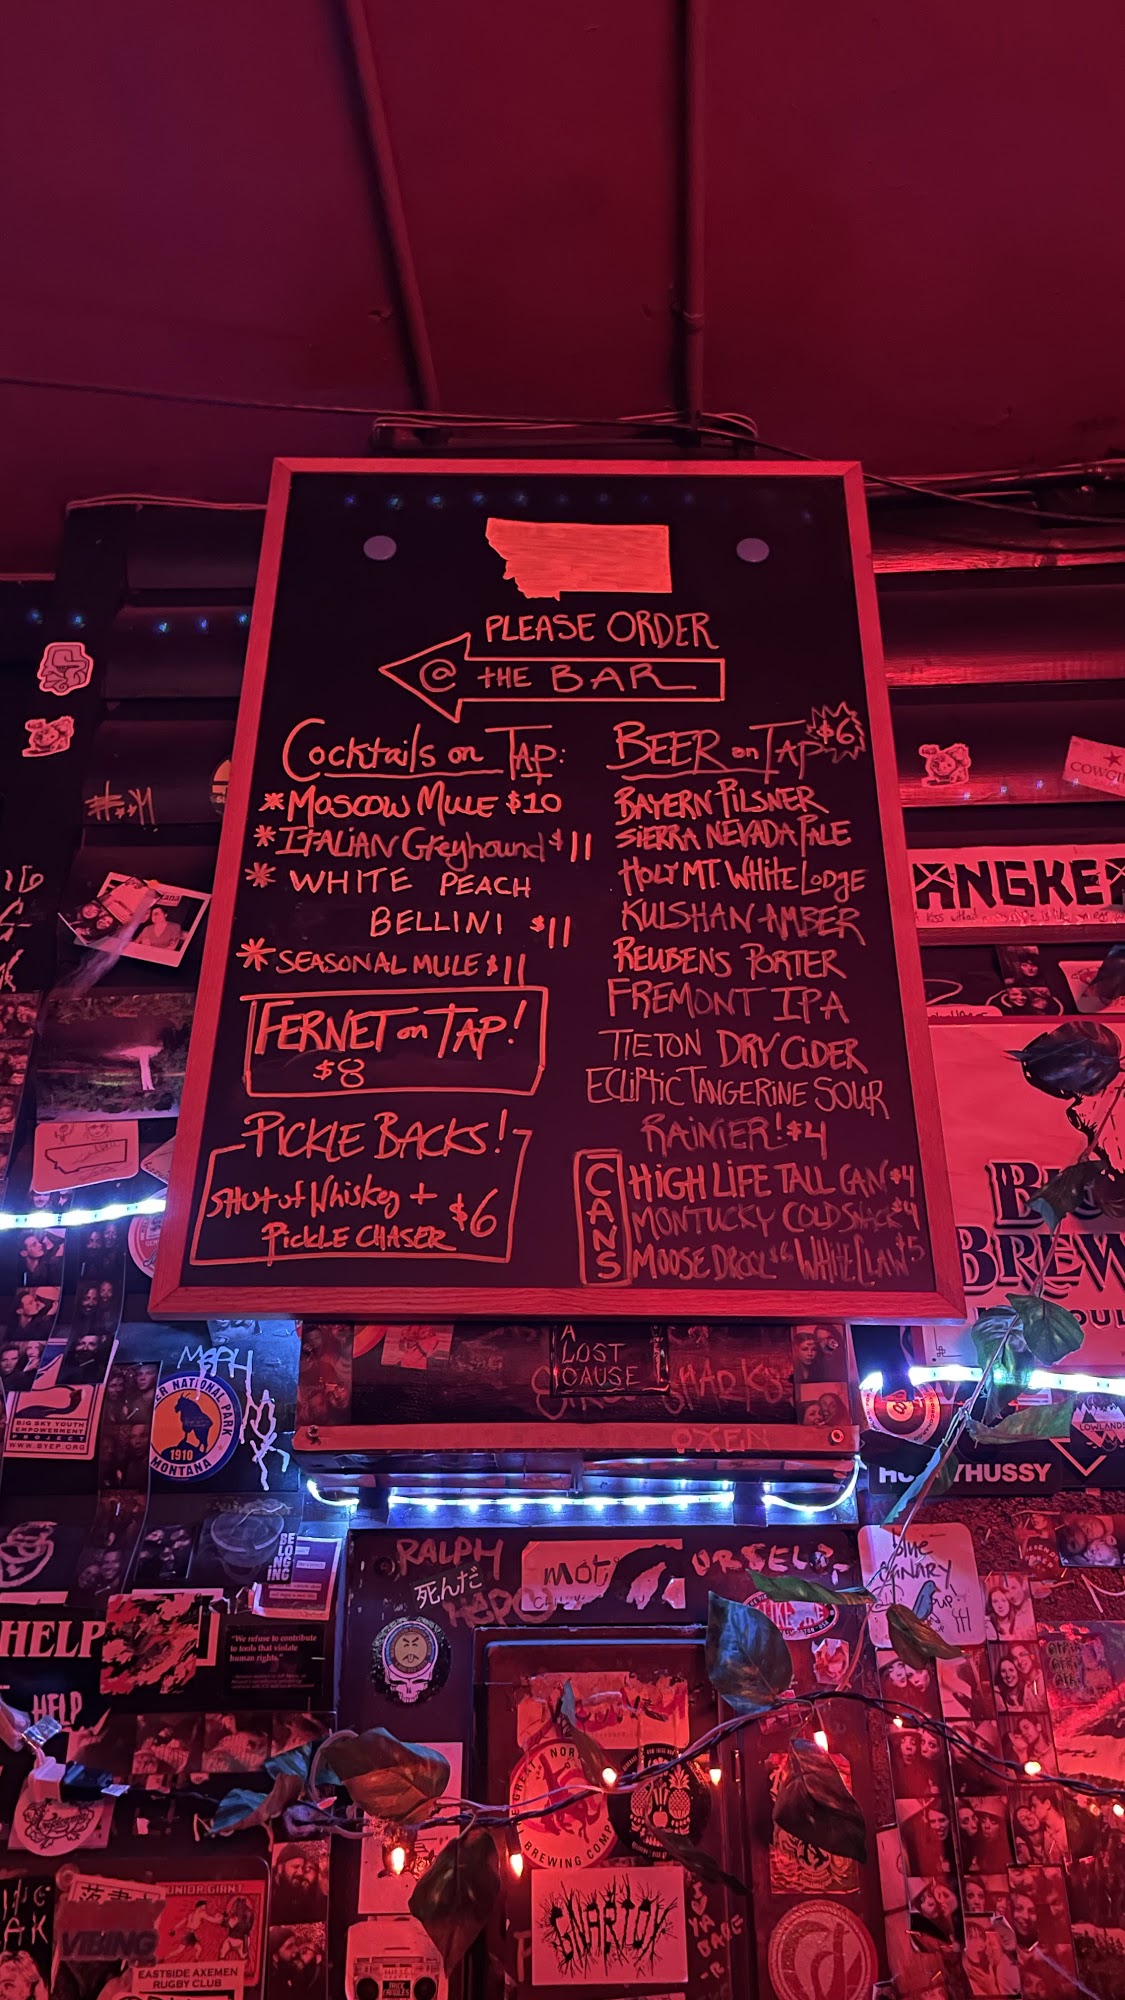 PLEASE ORDER
@ THE BAR
Cocktails on TAP:
* MOSCOW MULE $10
* ITALIAN Greyhound $11
* WHITE PEACH
BELLINI $11
* SEASONAL MULE $11
FERNET on TAP!
$8
PICKLE BACKS!
SHOT of Whiskey +
PICKLE CHASER $6
BEER on TAP $6
BAYERN PILSNER
SIERRA NEVADA PALE
HOLY MT. WHITE LODGE
KULSHAN AMBER
REUBENS PORTER
FREMONT IPA
TIETON DRY CIDER
ECLIPTIC TANGERINE SOUR
RAINIER! $4
CANS
HIGH LIFE TALL CAN $4
MONTUCKY COLD SNACK $4
MOOSE DROOL $6 WHITE CLAW $5
A
LOST
CAUSE
OXEN
ANGKE
COWGI
BREW
BIG SKY YOUTH
EMPOWERMENT
PROJECT
WWW.BYEP.ORG
ER NATIONAL PARK
1910
MONTANA
LOWLANDS
YHUSSY
BELONGING
RALPH
死んだ
URSELA
mot
Blue
CANARY
HELP
"We refuse to contribute
to tools that violate
human rights."
HELP
THE GREAT NOR
BREWING COMP
GNARTOY
UNIOR GIANT
VIBING
EASTSIDE AXEMEN
RUGBY CLUB